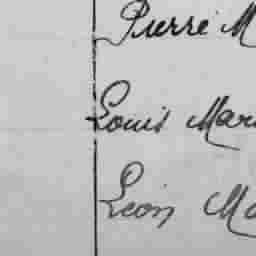 Pierre M
Louis Mari
Léon Ma